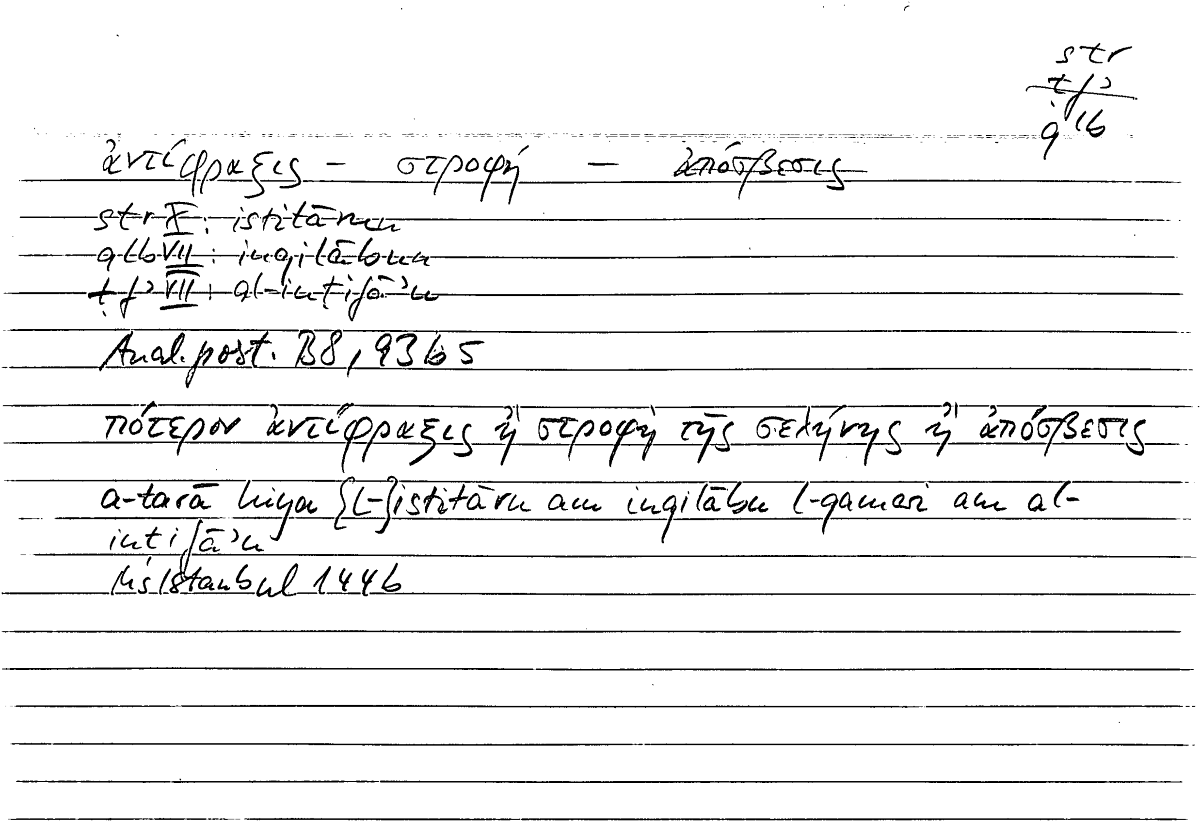 str
ṭfʾ
qlb
ἀντίφραξις – στροφή – ἀπόσβεσις
str X: istitārun
qlb VII: inqilābun
ṭfʾ VII: al-inṭifāʾu
Anal. post. B8, 93b5
πότερον ἀντίφραξις ἢ στροφὴ τῆς σελήνης ἢ ἀπόσβεσις
a-tarā hiya {l-}istitāru am inqilābu l-qamari am al-
inṭifāʾu
Ms Istanbul 144b